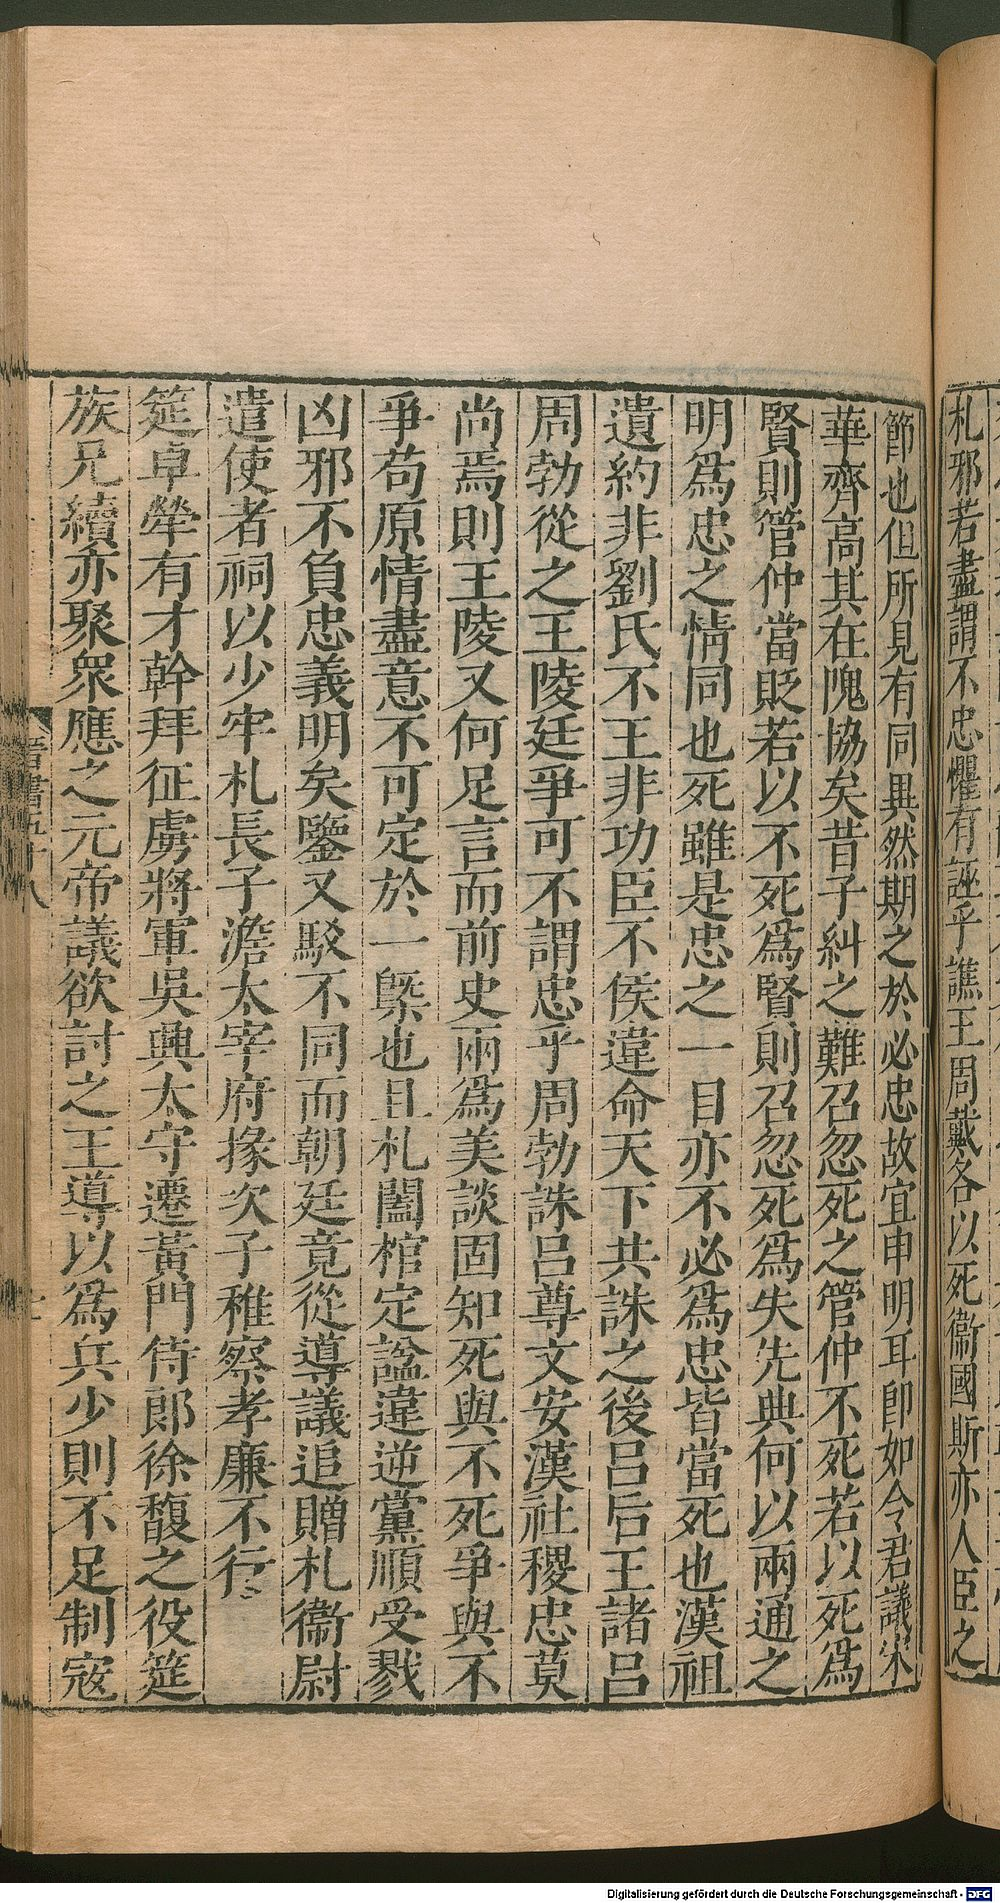 札邪若盡謂不忠懼有誣乎譙王周戴各以死衞國斯亦人臣之
節也但所見有同異然期之於必忠故宜申明耳卽如令君議宋
華齊高其在隗協矣昔子糾之難召忽死之管仲不死若以死爲
賢則管仲當貶若以不死爲賢則召忽死爲失先典何以兩通之
明爲忠之情同也死雖是忠之一目亦不必爲忠皆當死也漢祖
遺約非劉氏不王非功臣不侯違命天下共誅之後呂后王諸呂
周勃從之王陵廷爭可不謂忠乎周勃誅呂尊文安漢社稷忠莫
尚焉則王陵又何足言而前史兩爲美談固知死與不死爭與不
爭苟原情盡意不可定於一槩也且札闔棺定諡違逆黨順受戮
凶邪不負忠義明矣鑒又駁不同而朝廷竟從導議追贈札衞尉
遣使者祠以少牢札長子澹太宰府掾次子稚察孝廉不行
筵卓犖有才幹拜征虜將軍吳興太守遷黃門侍郎徐馥之役筵
族兄續亦聚衆應之元帝議欲討之王導以爲兵少則不足制寇
晉書五十八
Digitalisierung gefördert durch die Deutsche Forschungsgemeinschaft - DFG